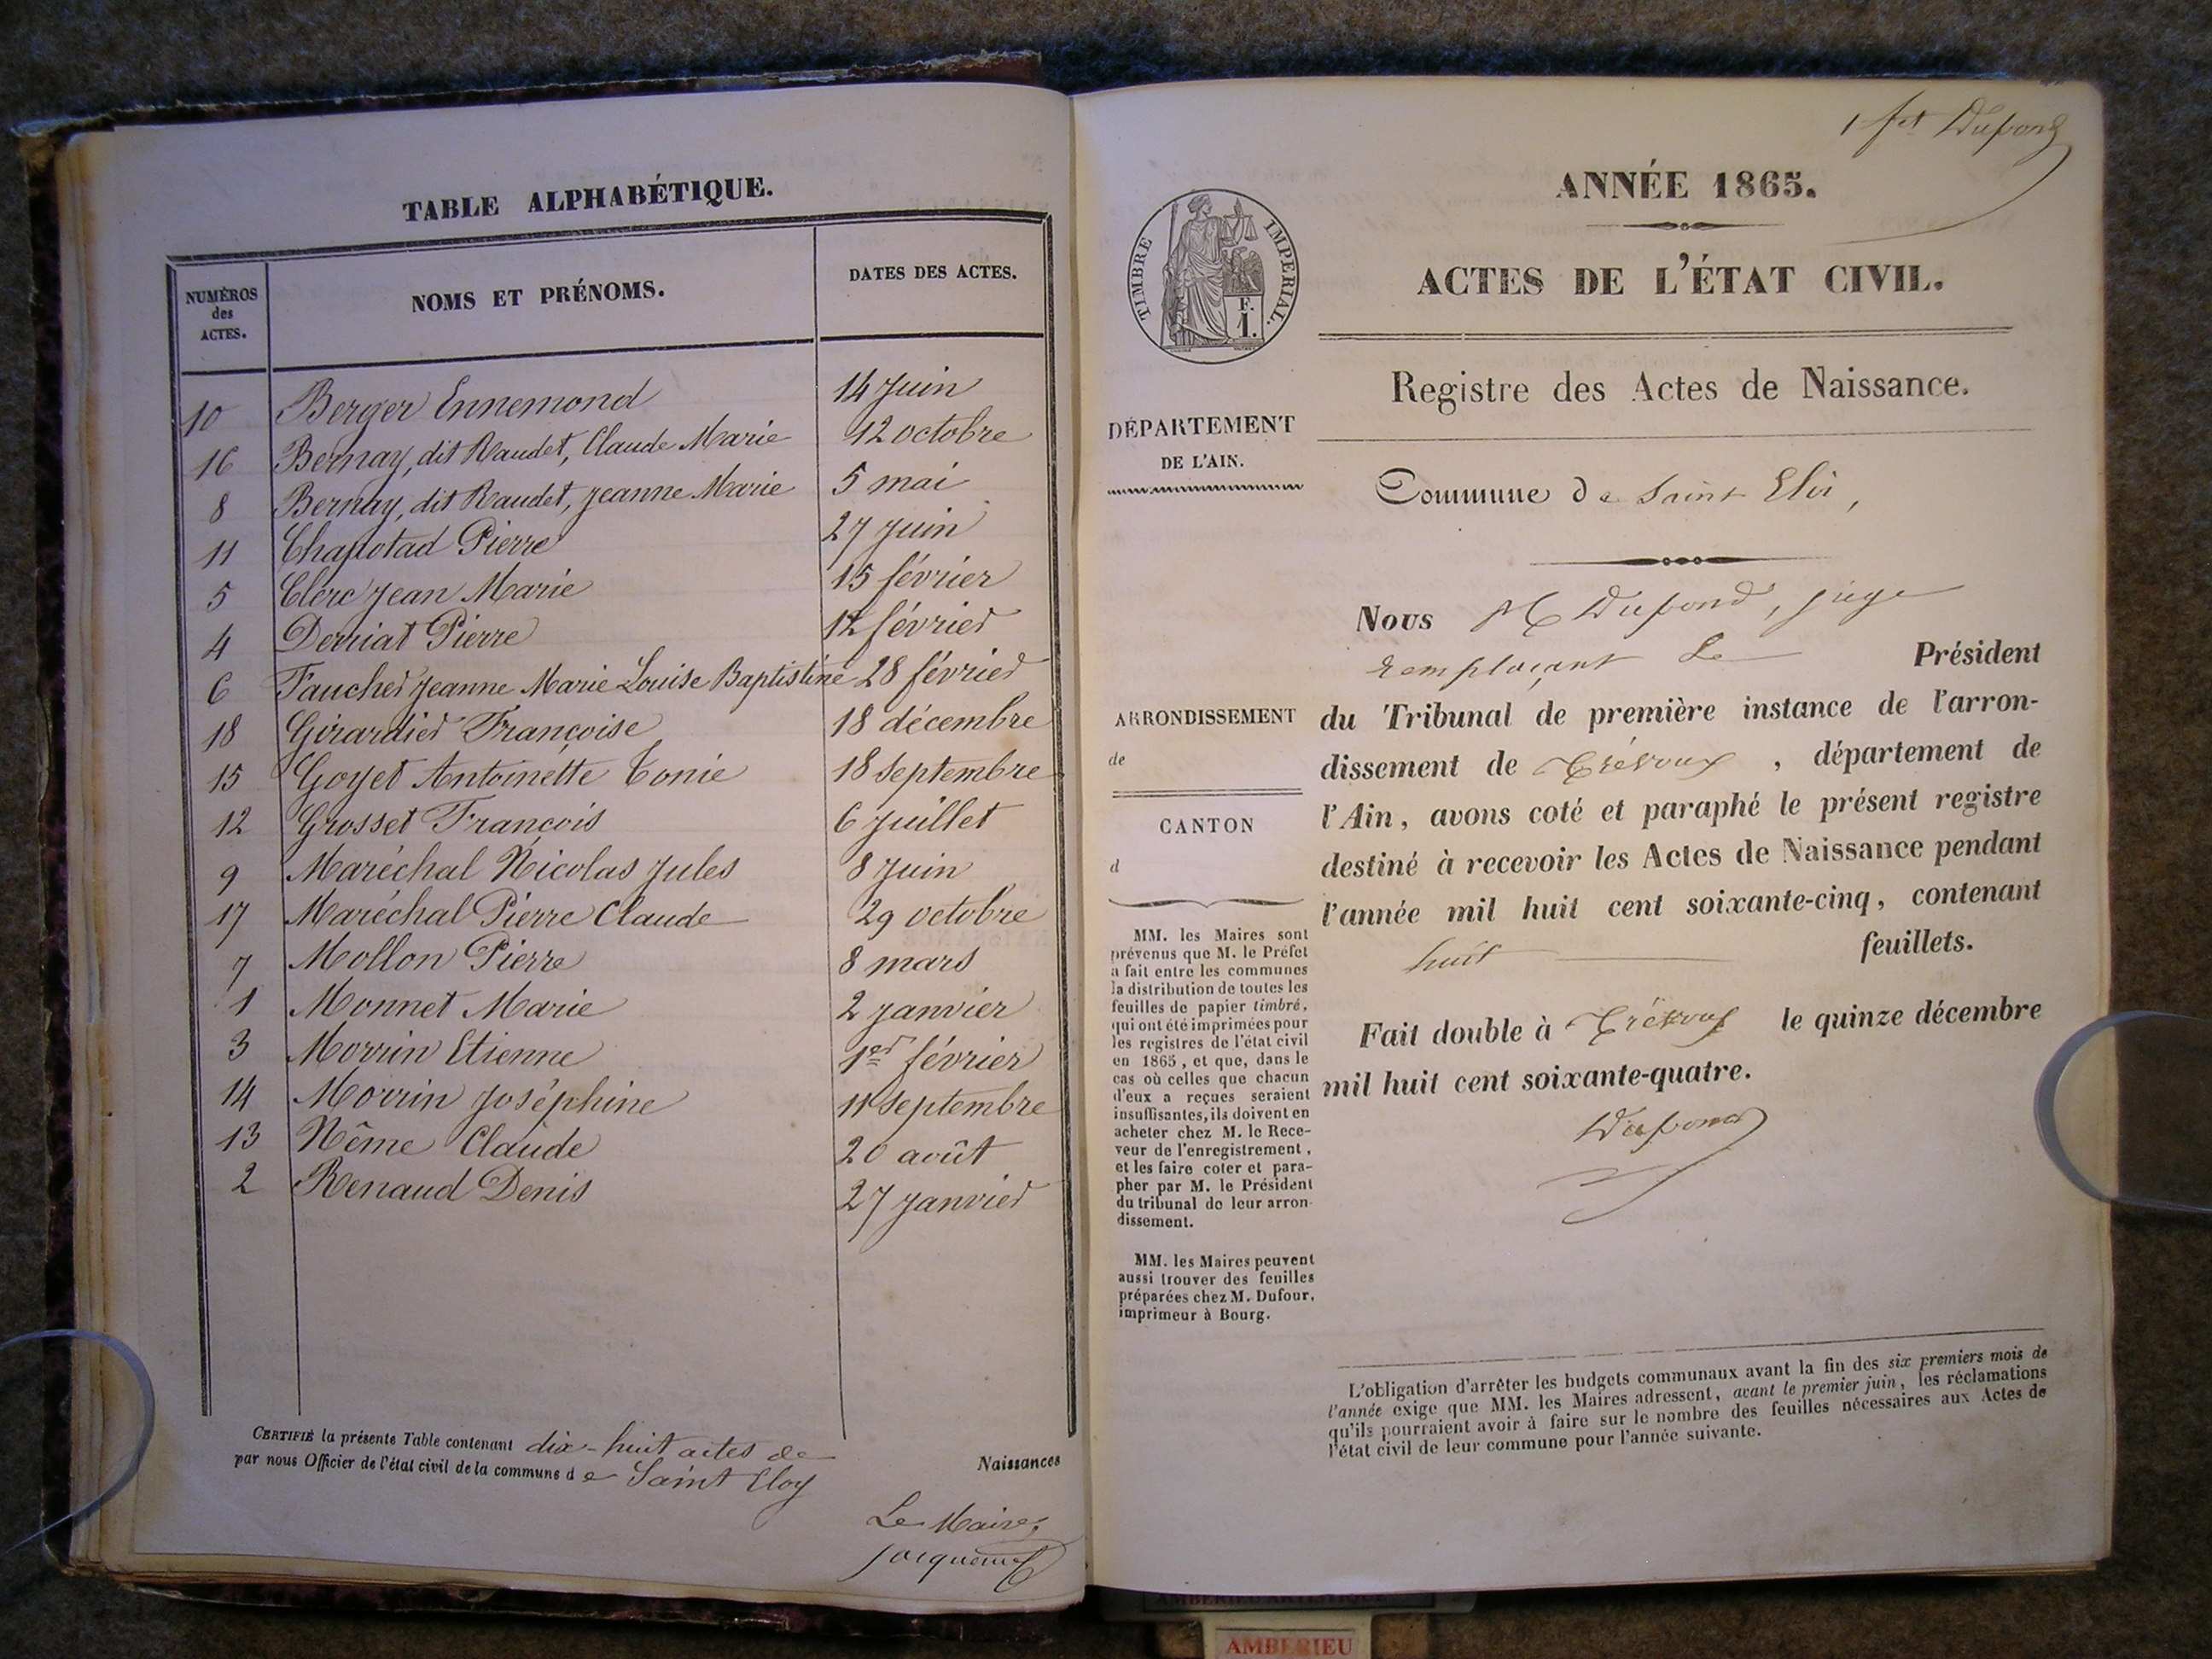 TABLE ALPHABÉTIQUE.
NUMÉROS des ACTES. NOMS ET PRÉNOMS. DATES DES ACTES.
10 Berger Ennemond 14 Juin
16 Bernay, dit Raudet, Claude Marie 12 octobre
8 Bernay, dit Raudet, Jeanne Marie 5 mai
11 Chapotad Pierre 27 Juin
5 Clerc Jean Marie 15 février
4 Derriat Pierre 12 février
6 Faucher Jeanne Marie Louise Baptistine 28 février
18 Girardier Françoise 18 décembre
15 Goyet Antoinette Tonie 18 Septembre
12 Grosset François 6 Juillet
9 Maréchal Nicolas Jules 8 Juin
17 Maréchal Pierre Claude 29 octobre
7 Mollon Pierre 8 mars
1 Monnet Marie 2 Janvier
3 Morrin Etienne 1er février
14 Morrin Joséphine 11 Septembre
13 Nême Claude 20 août
2 Renaud Denis 27 Janvier
CERTIFIÉ la présente Table contenant dix-huit actes de Naissances
par nous Officier de l'état civil de la commune de Saint Eloy
Le Maire,
1 fet Dupond
ANNÉE 1865.
ACTES DE L'ÉTAT CIVIL.
TIMBRE IMPERIAL.
F.
1.
Registre des Actes de Naissance.
DÉPARTEMENT
DE L'AIN.
Commune de Saint Eloi,
Nous Dupond, juge
remplaçant le Président
du Tribunal de première instance de l'arron-
dissement de Trévoux, département de
l'Ain, avons coté et paraphé le présent registre
destiné à recevoir les Actes de Naissance pendant
l'année mil huit cent soixante-cinq, contenant
huit feuillets.
Fait double à Trévoux le quinze décembre
mil huit cent soixante-quatre.
Dupond
ARRONDISSEMENT
de
CANTON
d
MM. les Maires sont
prévenus que M. le Préfet
a fait entre les communes
la distribution de toutes les
feuilles de papier timbré,
qui ont été imprimées pour
les registres de l'état civil
en 1865, et que, dans le
cas où celles que chacun
d'eux a reçues seraient
insuffisantes, ils doivent en
acheter chez M. le Rece-
veur de l'enregistrement,
et les faire coter et para-
pher par M. le Président
du tribunal de leur arron-
dissement.
MM. les Maires peuvent
aussi trouver des feuilles
préparées chez M. Dufour,
imprimeur à Bourg.
L'obligation d'arrêter les budgets communaux avant la fin des six premiers mois de
l'année exige que MM. les Maires adressent, avant le premier juin, les réclamations
qu'ils pourraient avoir à faire sur le nombre des feuilles nécessaires aux Actes de
l'état civil de leur commune pour l'année suivante.
AMBERIEU ARTISTIQUE
AMBERIEU